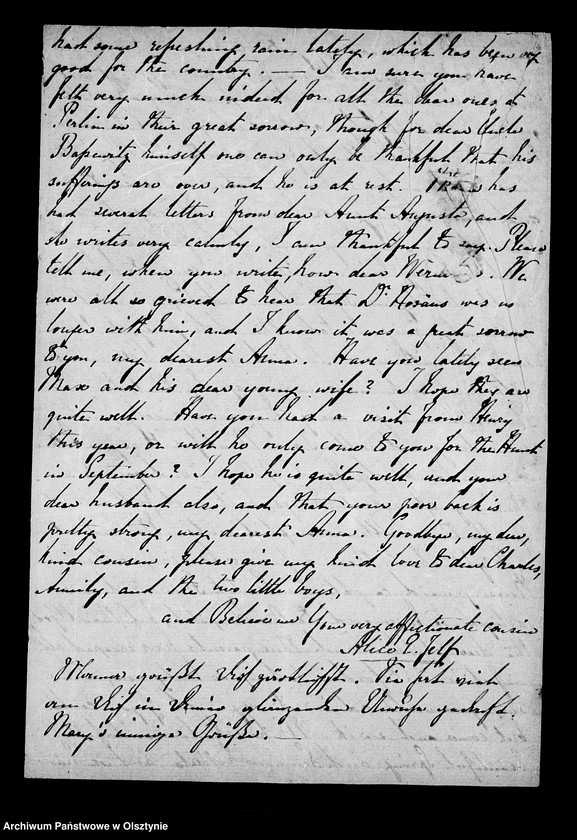 had some refreshing rain lately, which has been very
good for the country. — I am sure you have
felt very much indeed for all the dear ones at
Berlin in their great sorrow, though for dear Uncle
himself one can only be thankful that his
sufferings are over, and he is at rest. has
had several letters from dear Aunt Augusta, and
she writes very calmly, I am thankful to say. Please
tell me, when you write, how dear Werner is. We
were all so grieved to hear that Dr. was no
longer with him, and I know it was a great sorrow
to you, my dearest Anna. Have you lately seen
Max and his dear young wife? I hope they are
quite well. Have you had a visit from Henry
this year, or will he only come to you for the Hunt
in September? I hope he is quite well, and your
dear husband also, and that your poor back is
pretty strong, my dearest Anna. Goodbye, my dear,
kind cousin, please give my kind love to dear Charles,
and the two little boys,
and Believe me Your very affectionate cousin
Alice E. Jelf
grüßt Dich zärtlichst. Sie hat viel
an Dich in
Mary's innige Grüße. —
Archiwum Państwowe w Olsztynie